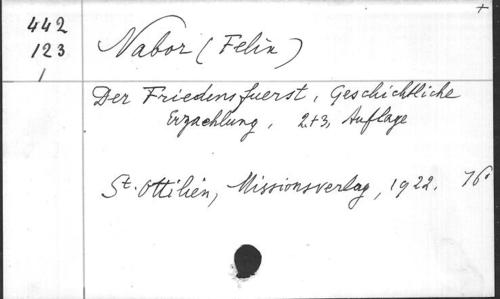 +
442
123
1
Nabor (Felix)
Der Friedensfuerst, Geschichtliche
Erzaehlung, 2+3, Auflage
St. Ottilien, Missionsverlag, 1922.